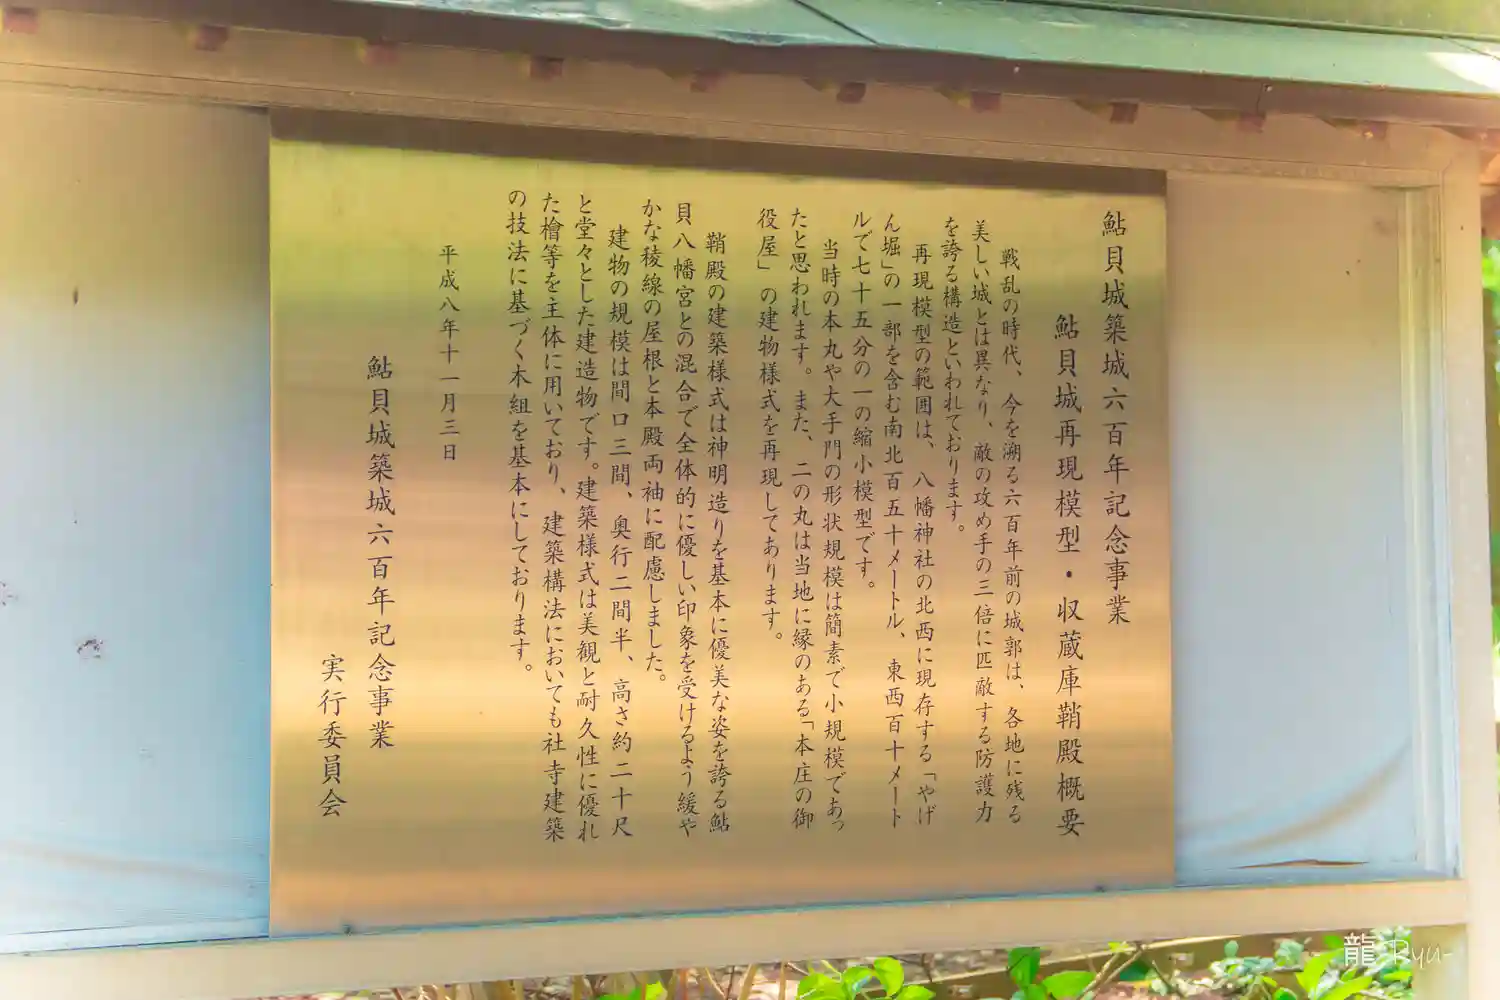 鮎貝城築城六百年記念事業
鮎貝城再現模型・収蔵庫鞘殿概要
戦乱の時代、今を溯る六百年前の城郭は、各地に残る
美しい城とは異なり、敵の攻め手の三倍に匹敵する防護力
を誇る構造といわれております。
再現模型の範囲は、八幡神社の北西に現存する「やげ
ん堀」の一部を含む南北百五十メートル、東西百十メート
ルで七十五分の一の縮小模型です。
当時の本丸や大手門の形状規模は簡素で小規模であっ
たと思われます。また、二の丸は当地に縁のある「本庄の御
役屋」の建物様式を再現してあります。
鞘殿の建築様式は神明造りを基本に優美な姿を誇る鮎
貝八幡宮との混合で全体的に優しい印象を受けるよう緩や
かな稜線の屋根と本殿両袖に配慮しました。
建物の規模は間口三間、奥行二間半、高さ約二十尺
と堂々とした建造物です。建築様式は美観と耐久性に優れ
た檜等を主体に用いており、建築構法においても社寺建築
の技法に基づく木組を基本にしております。
平成八年十一月三日
鮎貝城築城六百年記念事業
実行委員会
龍 -Ryu-